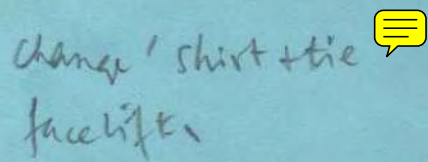 change' shirt + tie
facelift.